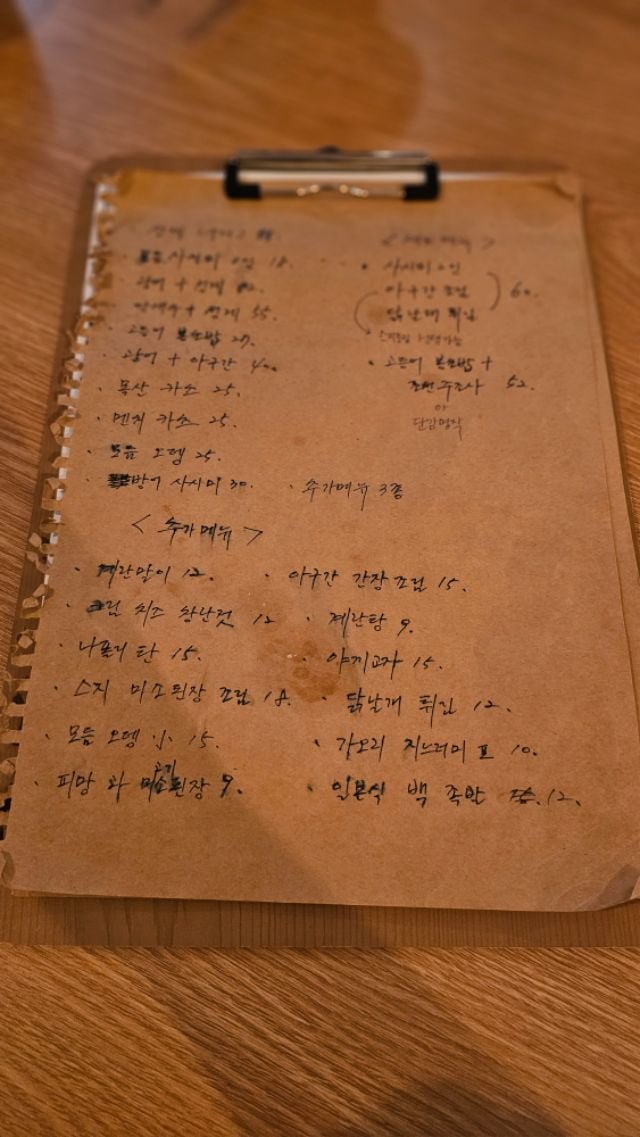 사시미 2인 18.
광어 + 성게
+ 성게 55.
고등어 봉초밥 27.
광어 + 아구간
목산 카츠 25.
멘치 카츠 25.
모듬 오뎅 25.
방어 사시미 30.
사시미 2인
아구간 조림
닭날개 튀김
60.
고등어 봉초밥 +
52.
or
· 추가메뉴 3종
< 추가메뉴 >
· 계란말이 12.
· 아구간 간장조림 15.
· 크림 치즈 창난젓 12
· 계란탕 9.
· 나폴리탄 15.
· 야끼교자 15.
· 스지 미소된장 조림 18.
· 닭날개 튀김 12.
· 모듬 오뎅 小 15.
· 가오리 지느러미 10.
· 피망과 고기된장 9.
· 일본식 백 족발 12.